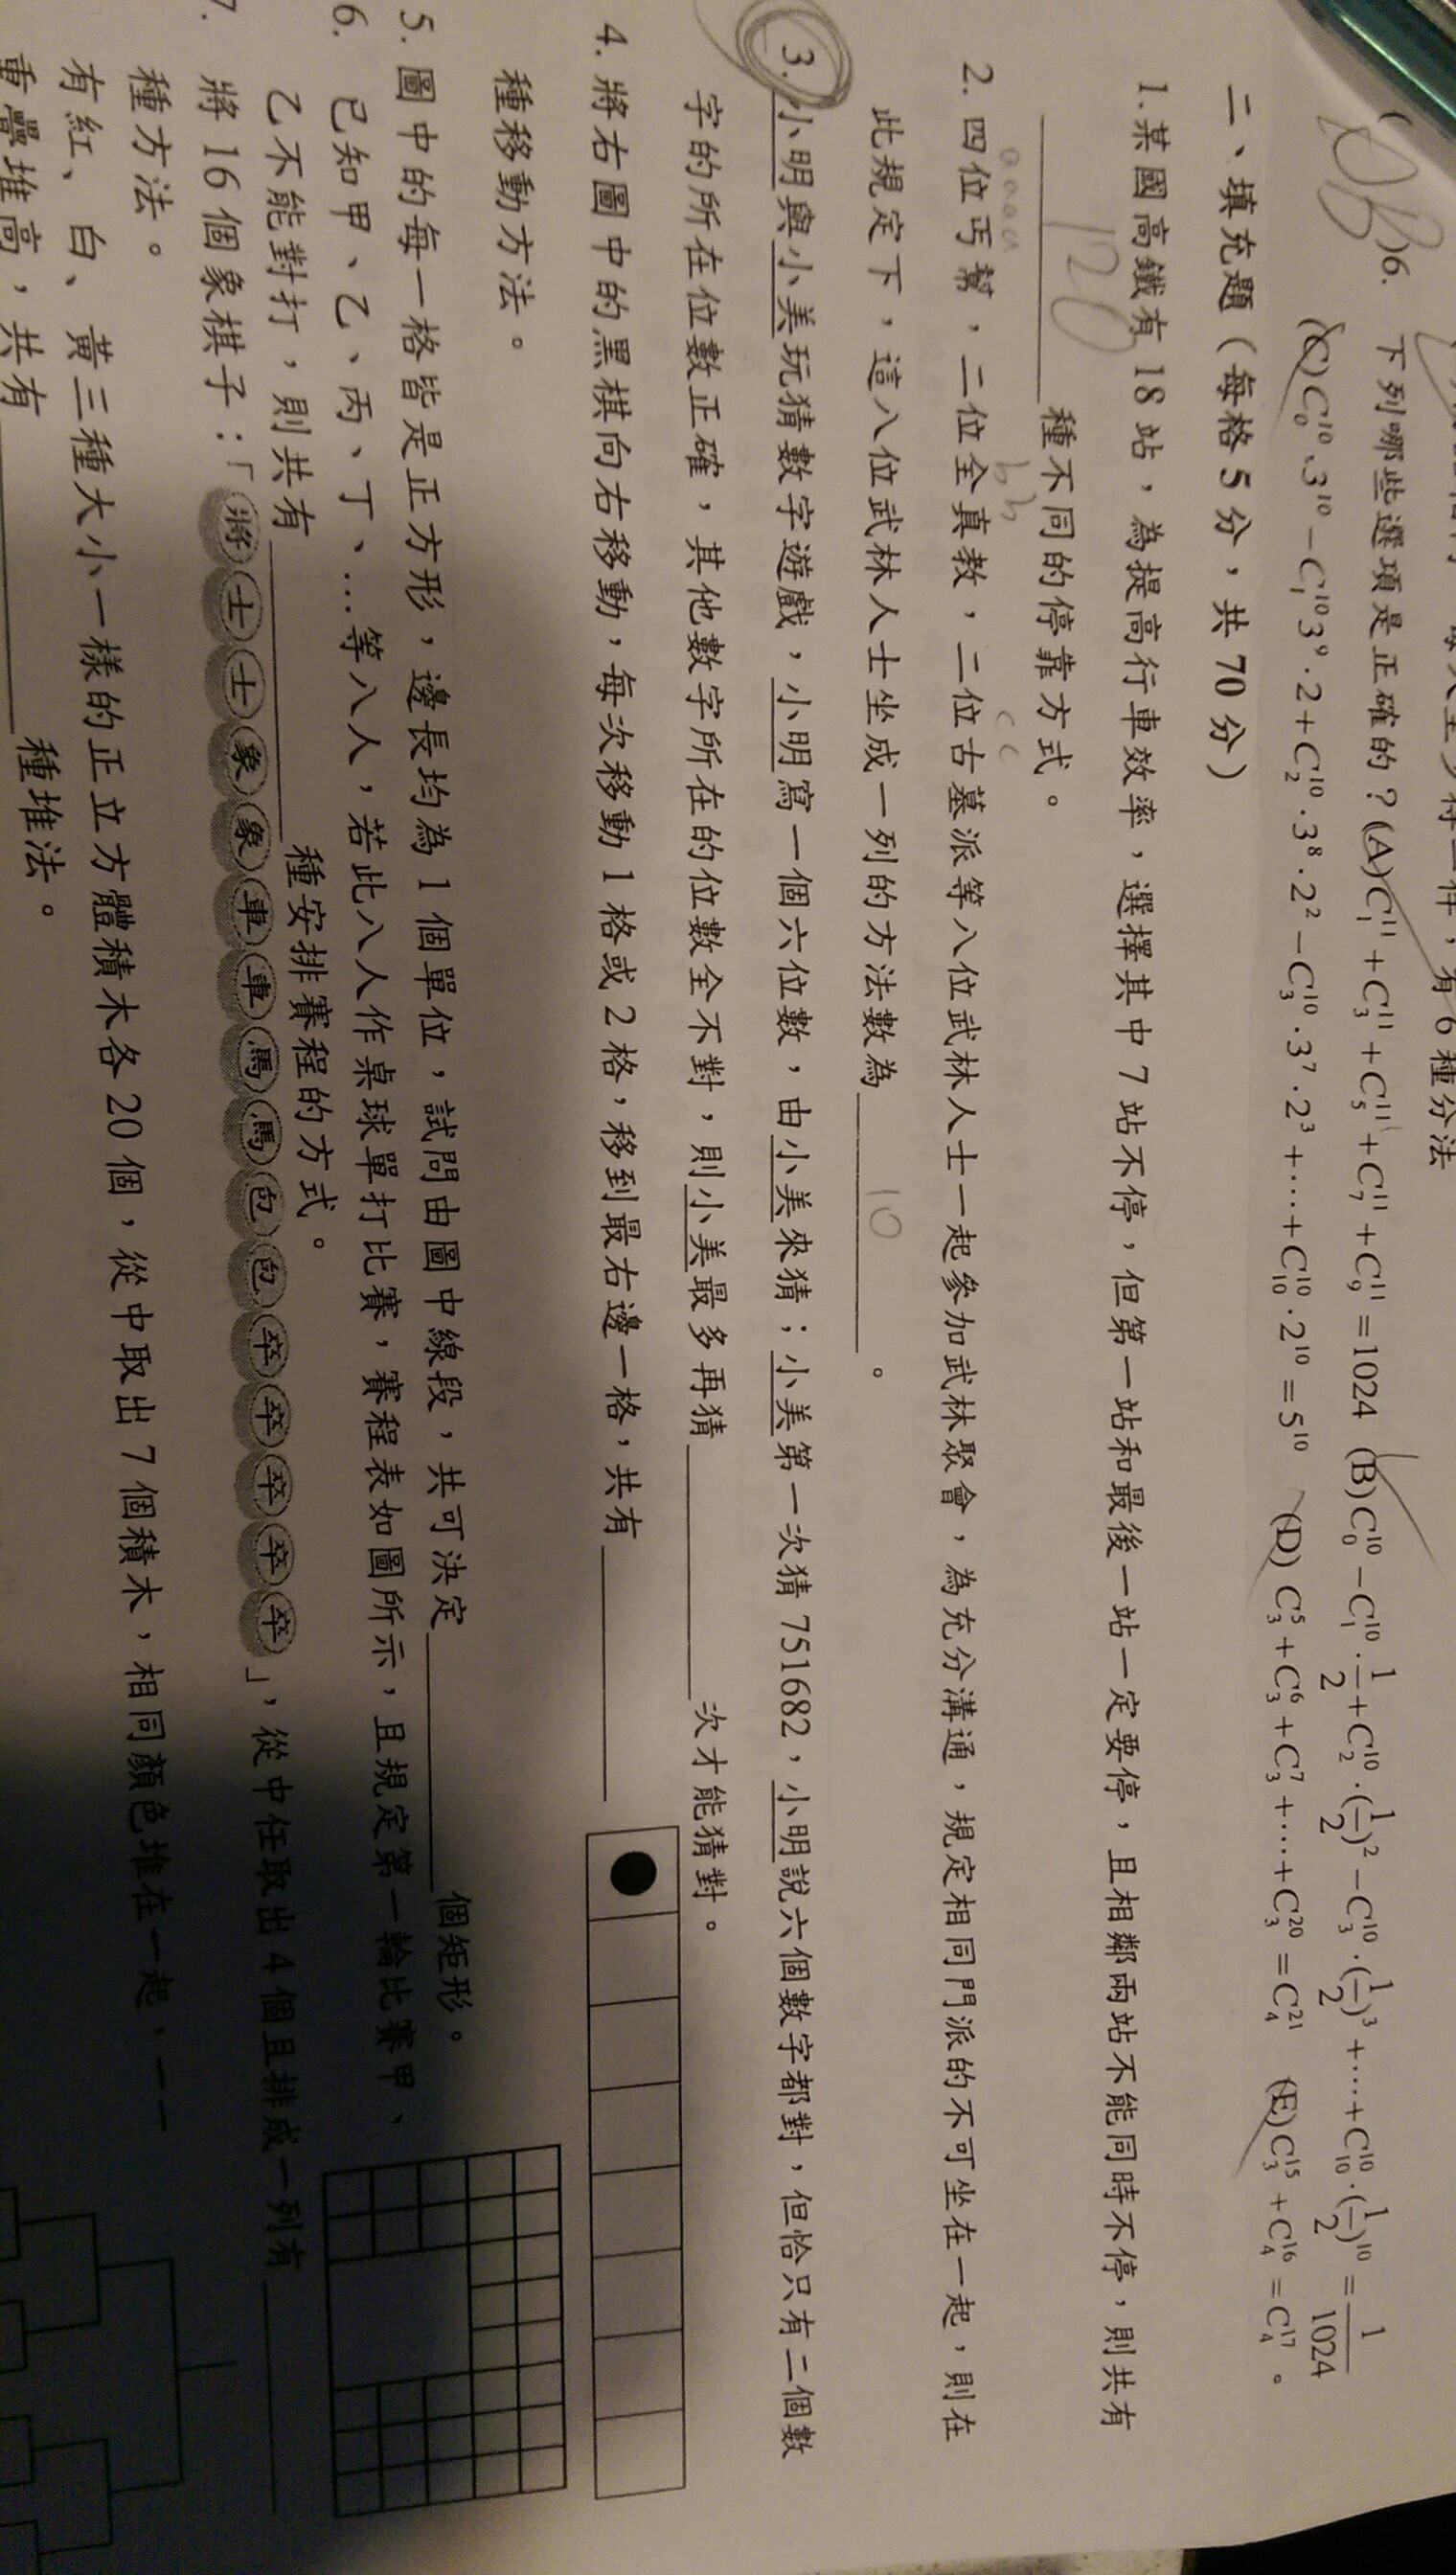 有 6 種分法
( )6. 下列哪些選項是正確的？(A)C₁¹¹+C₃¹¹+C₅¹¹+C₇¹¹+C₉¹¹=1024 (B)C₀¹⁰−C₁¹⁰·1/2+C₂¹⁰·(1/2)²−C₃¹⁰·(1/2)³+⋯+C₁₀¹⁰·(1/2)¹⁰=1/1024
(C)C₀¹⁰·3¹⁰−C₁¹⁰3⁹·2+C₂¹⁰·3⁸·2²−C₃¹⁰·3⁷·2³+⋯+C₁₀¹⁰·2¹⁰=5¹⁰ (D) C₃⁵+C₃⁶+C₃⁷+⋯+C₃²⁰=C₄²¹ (E)C₃¹⁵+C₄¹⁶=C₄¹⁷。
二、填充題（每格 5 分，共 70 分）
1.某國高鐵有 18 站，為提高行車效率，選擇其中 7 站不停，但第一站和最後一站一定要停，且相鄰兩站不能同時不停，則共有
120 種不同的停靠方式。
aaaa bb cc
2.四位丐幫，二位全真教，二位古墓派等八位武林人士一起參加武林聚會，為充分溝通，規定相同門派的不可坐在一起，則在
此規定下，這八位武林人士坐成一列的方法數為 10 。
3.小明與小美玩猜數字遊戲，小明寫一個六位數，由小美來猜；小美第一次猜 751682，小明說六個數字都對，但恰只有二個數
字的所在位數正確，其他數字所在的位數全不對，則小美最多再猜 次才能猜對。
4.將右圖中的黑棋向右移動，每次移動 1 格或 2 格，移到最右邊一格，共有
種移動方法。
5.圖中的每一格皆是正方形，邊長均為 1 個單位，試問由圖中線段，共可決定 個矩形。
6.已知甲、乙、丙、丁、…等八人，若此八人作桌球單打比賽，賽程表如圖所示，且規定第一輪比賽甲、
乙不能對打，則共有 種安排賽程的方式。
7.將 16 個象棋子：「將士士象象車車馬馬包包卒卒卒卒卒」，從中任取出 4 個且排成一列有
種方法。
有紅、白、黃三種大小一樣的正立方體積木各 20 個，從中取出 7 個積木，相同顏色堆在一起，一一
重疊堆高，共有 種堆法。